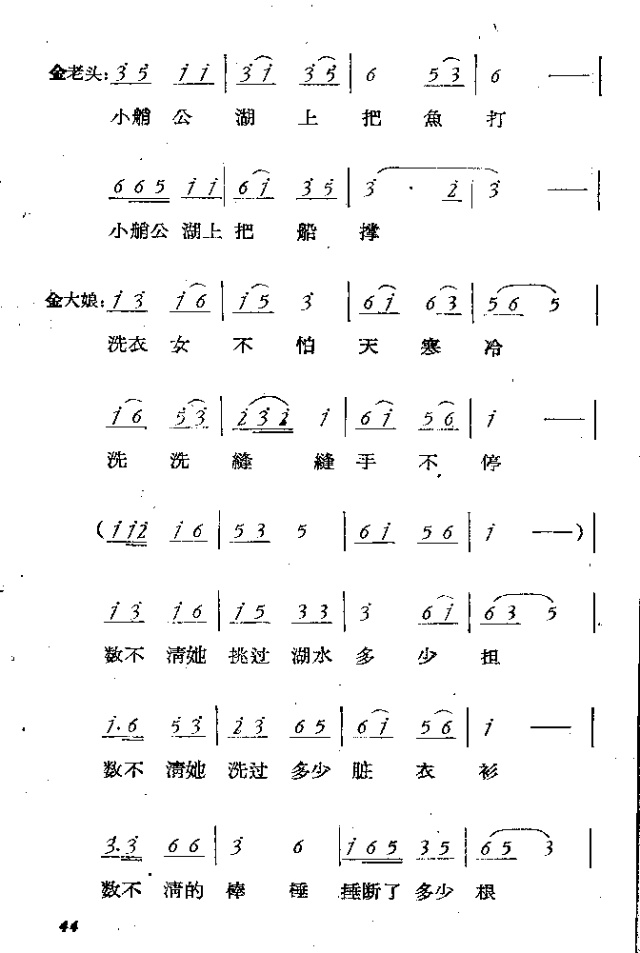 金老头: 3 5 i i | 3 i 3 5 | 6 5 3 | 6 — |
小艄公湖上把魚打
6 6 5 i i | 6 i 3 5 | 3 · 2 | 3 — |
小艄公湖上把船撑
金大娘: i 3 i 6 | i 5 3 | 6 i 6 3 | 5 6 5 |
洗衣女不怕天寒冷
i 6 5 3 | 2 3 2 i | 6 i 5 6 | i — |
洗洗縫縫手不停
(i i 2 i 6 | 5 3 5 | 6 i 5 6 | i —)|
i 3 i 6 | i 5 3 3 | 3 6 i | 6 3 5 |
数不清她挑过湖水多少担
i. 6 5 3 | 2 3 6 5 | 6 i 5 6 | i — |
数不清她洗过多少脏衣衫
3. 3 6 6 | 3 6 | i 6 5 3 5 | 6 5 3 |
数不清的棒棰捶断了多少根
44